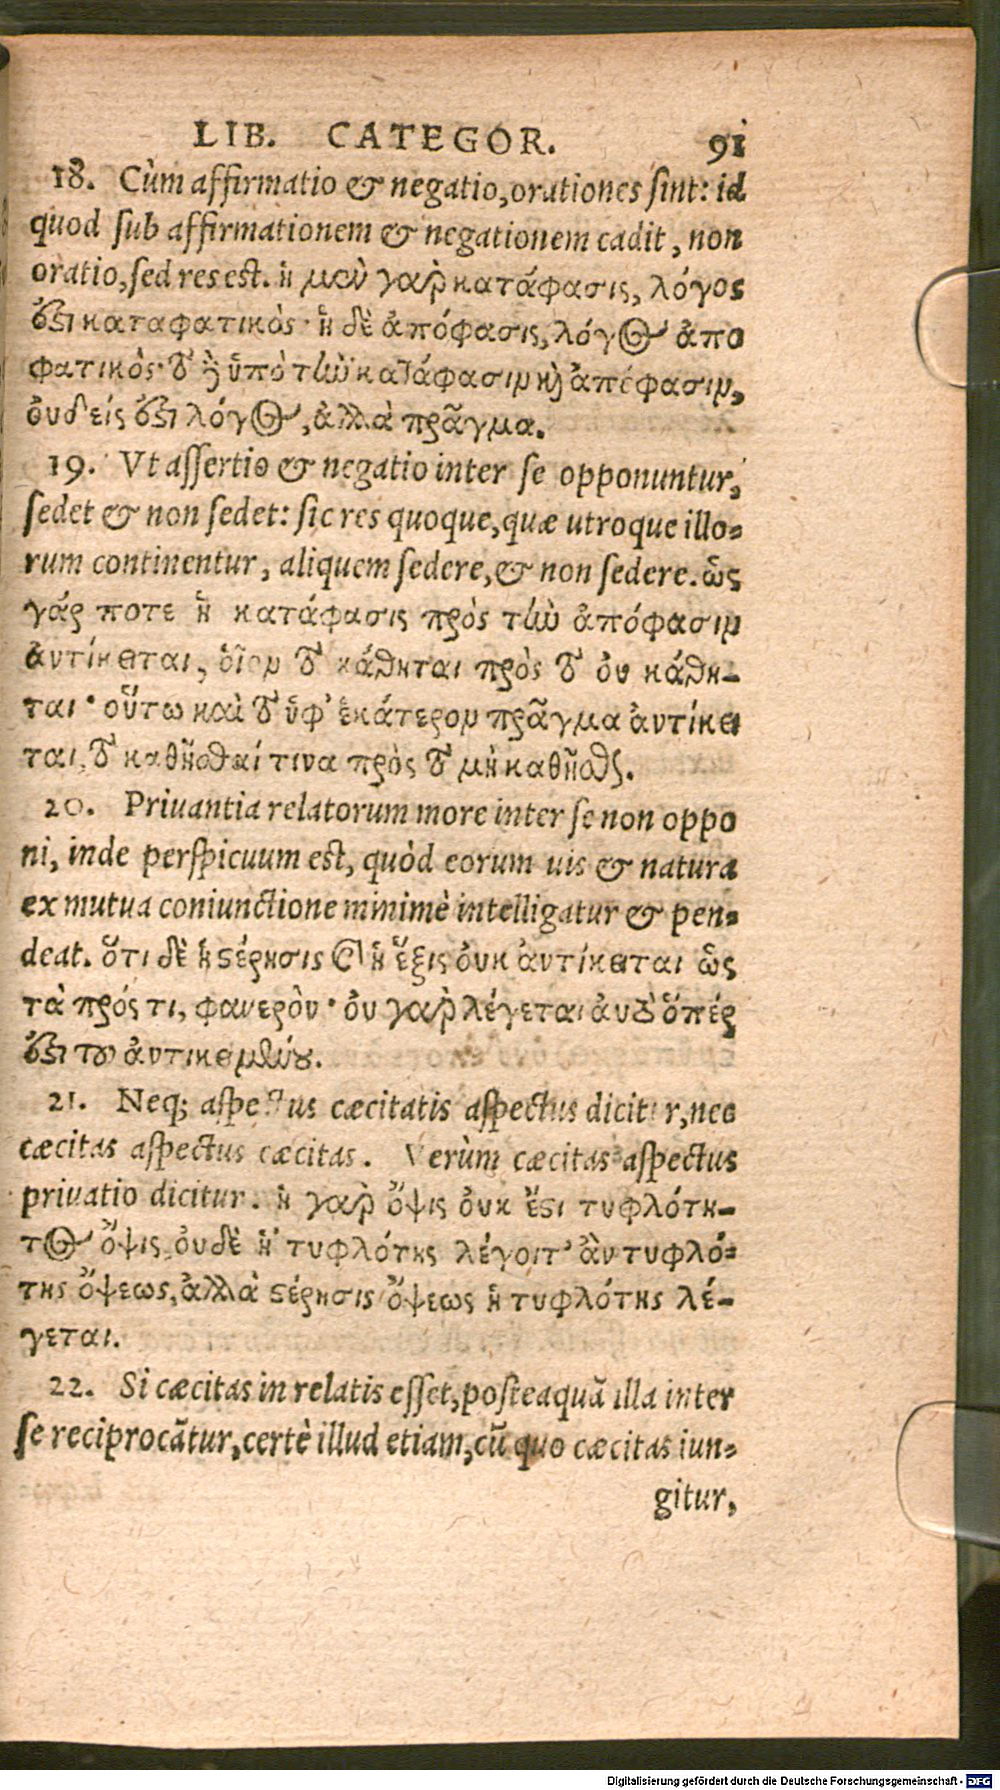 LIB. CATEGOR. 91
18. Cùm affirmatio & negatio, orationes sint: id
quod sub affirmationem & negationem cadit, non
oratio, sed res est. ἡ μὲν γαρ κατάφασις, λόγος
ὅξι καταφατικὸς· ἡ δὲ ἀπόφασις, λόγος ἀπο
φατικὸς· τὸ ἢ ὑπὸ τὴν κατάφασιν κὶ ἀπόφασιν,
ὀυδείς ὅξι λόγος, ἀλλὰ πρᾶγμα.
19. Vt assertio & negatio inter se opponuntur,
sedet & non sedet: sic res quoque, quæ utroque illo-
rum continentur, aliquem sedere, & non sedere. ὥς
γάρ ποτε ἡ κατάφασις πρὸς τὴν ἀπόφασιν
ἀντίκειται, οἷον τὸ κάθηται πρὸς τὸ ὀυ κάθη-
ται· οὕτω καὶ τὸ ὑφ' ἑκάτερον πρᾶγμα ἀντίκει
ται, τὸ καθῆσθαί τινα πρὸς τὸ μὴ καθῆσθαι.
20. Priuantia relatorum more inter se non oppo
ni, inde perspicuum est, quòd eorum uis & natura
ex mutua coniunctione minimè intelligatur & pen-
deat. ὅτι δὲ ἡ στέρησις καὶ ἡ ἕξις ὀυκ ἀντίκειται ὡς
τὰ πρός τι, φανερὸν· ὀυ γαρ λέγεται ἀυτὸ ὅπέρ
ὅξι τοῦ ἀντικειμένου.
21. Neq; aspectus cæcitatis aspectus dicitur, nec
cæcitas aspectus cæcitas. Verùm cæcitas aspectus
priuatio dicitur. ἡ γαρ ὄψις ὀυκ ἔστι τυφλότη-
τος ὄψις, ὀυδὲ ἡ τυφλότης λέγοιτ' ἂν τυφλό-
της ὄψεως, ἀλλὰ στέρησις ὄψεως ἡ τυφλότης λέ-
γεται.
22. Si cæcitas in relatis esset, posteaquã illa inter
se reciprocãtur, certè illud etiam, cũ quo cæcitas iun-
gitur,
Digitalisierung gefördert durch die Deutsche Forschungsgemeinschaft - DFG